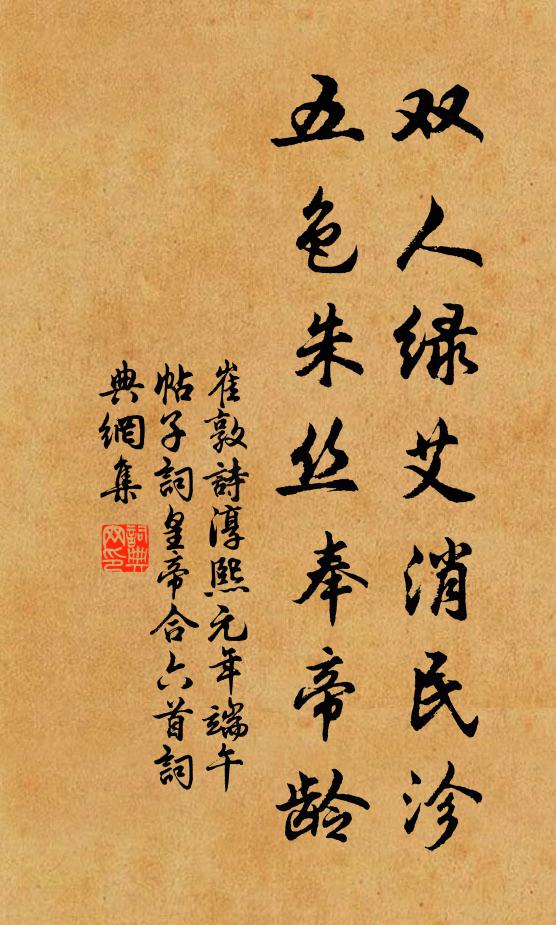 双人绿艾消民沴
五色朱丝奉帝龄
崔敦詩淳熙元年端午
帖子詞皇帝合六首詞
典網集
詞典
网印